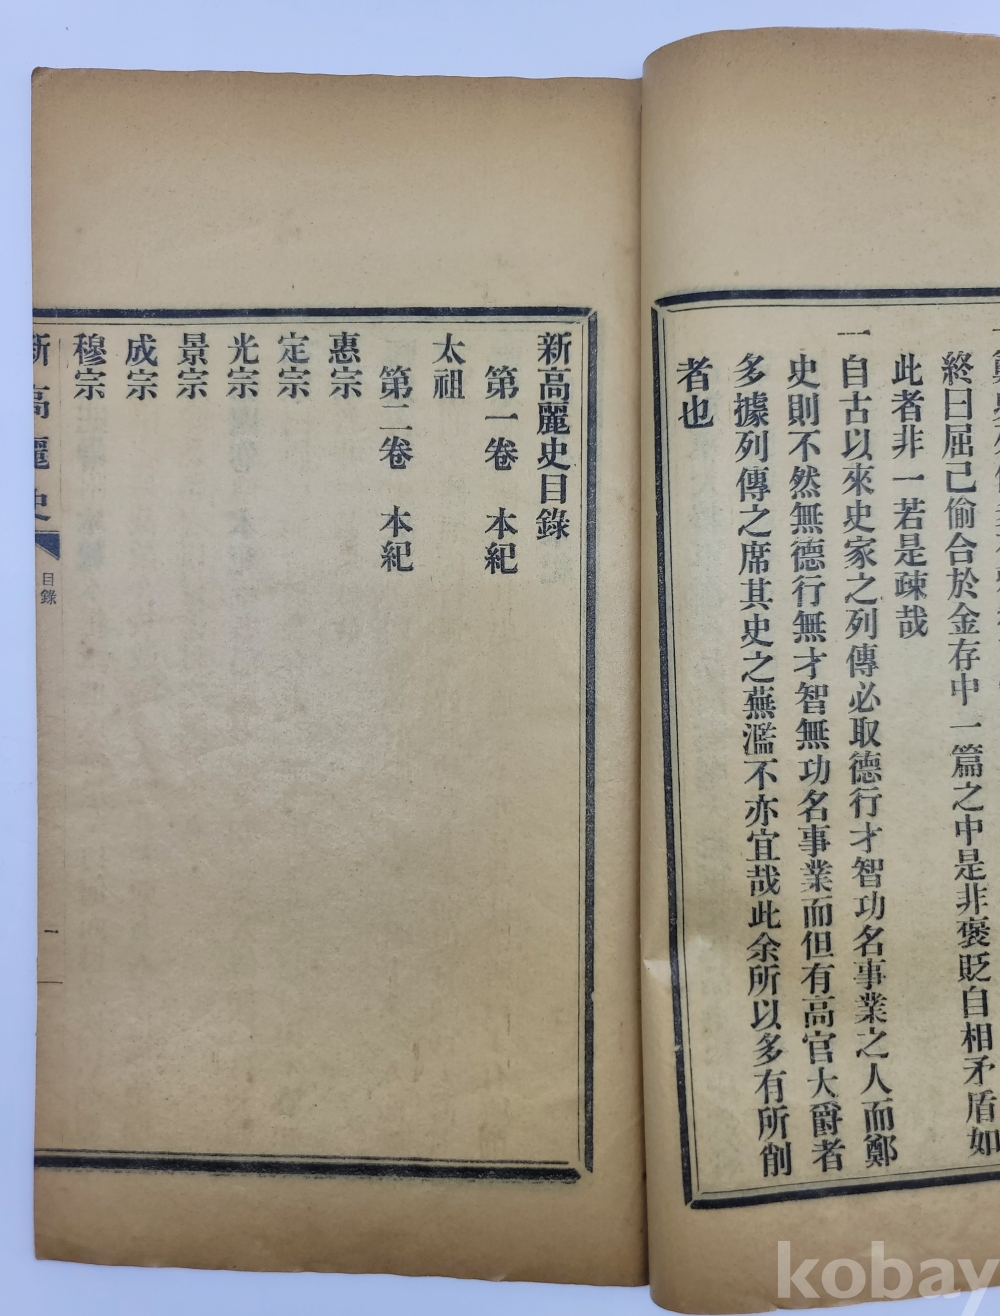 終日屈己偷合於金存中一篇之中是非褒貶自相矛盾如
此者非一若是疎哉
一自古以來史家之列傳必取德行才智功名事業之人而鄭
史則不然無德行無才智無功名事業而但有高官大爵者
多據列傳之席其史之蕪濫不亦宜哉此余所以多有所削
者也
新高麗史目錄
第一卷 本紀
太祖
第二卷 本紀
惠宗
定宗
光宗
景宗
成宗
穆宗
新高麗史 目錄 一
kobay